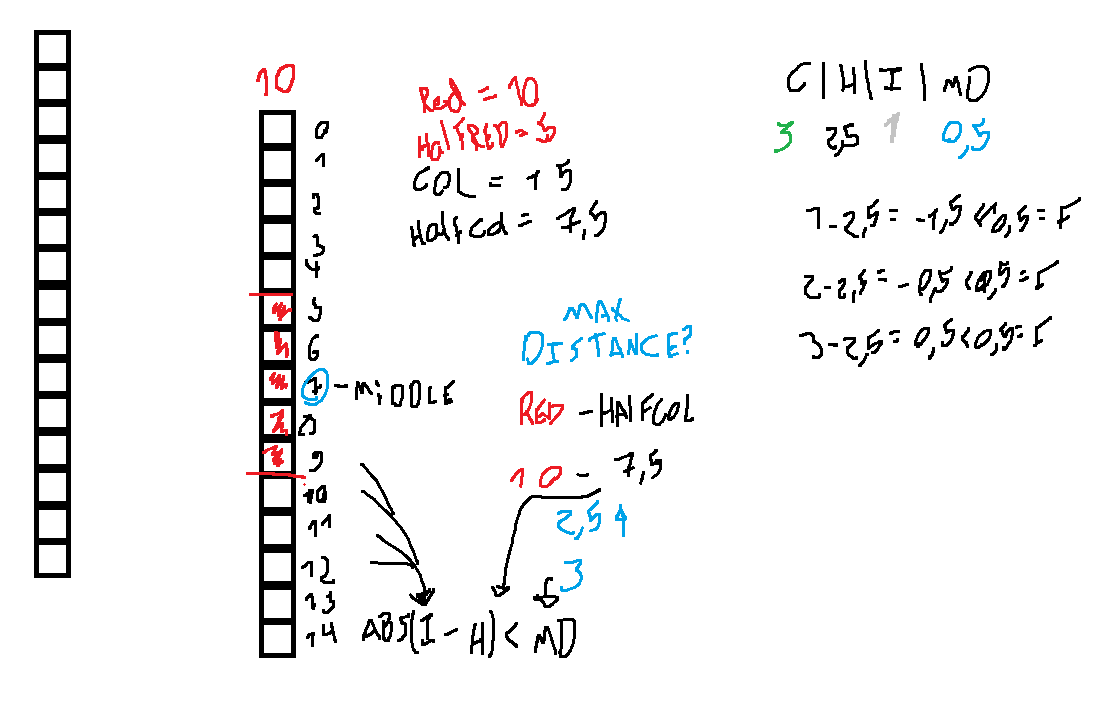 10
0
1
2
3
4
5
6
7 - MIDDLE
9
10
11
12
13
14
Red = 10
HalfRED = 5
COL = 15
HalfCol = 7,5
MAX
DISTANCE?
RED - HALFCOL
10 - 7,5
2,5
3
ABS(I - H) < MD
C | H | I | MD
3 2,5 1 0,5
1-2,5 = -1,5 < 0,5 = F
2-2,5 = -0,5 < 0,5 = F
3-2,5 = 0,5 < 0,5 = F